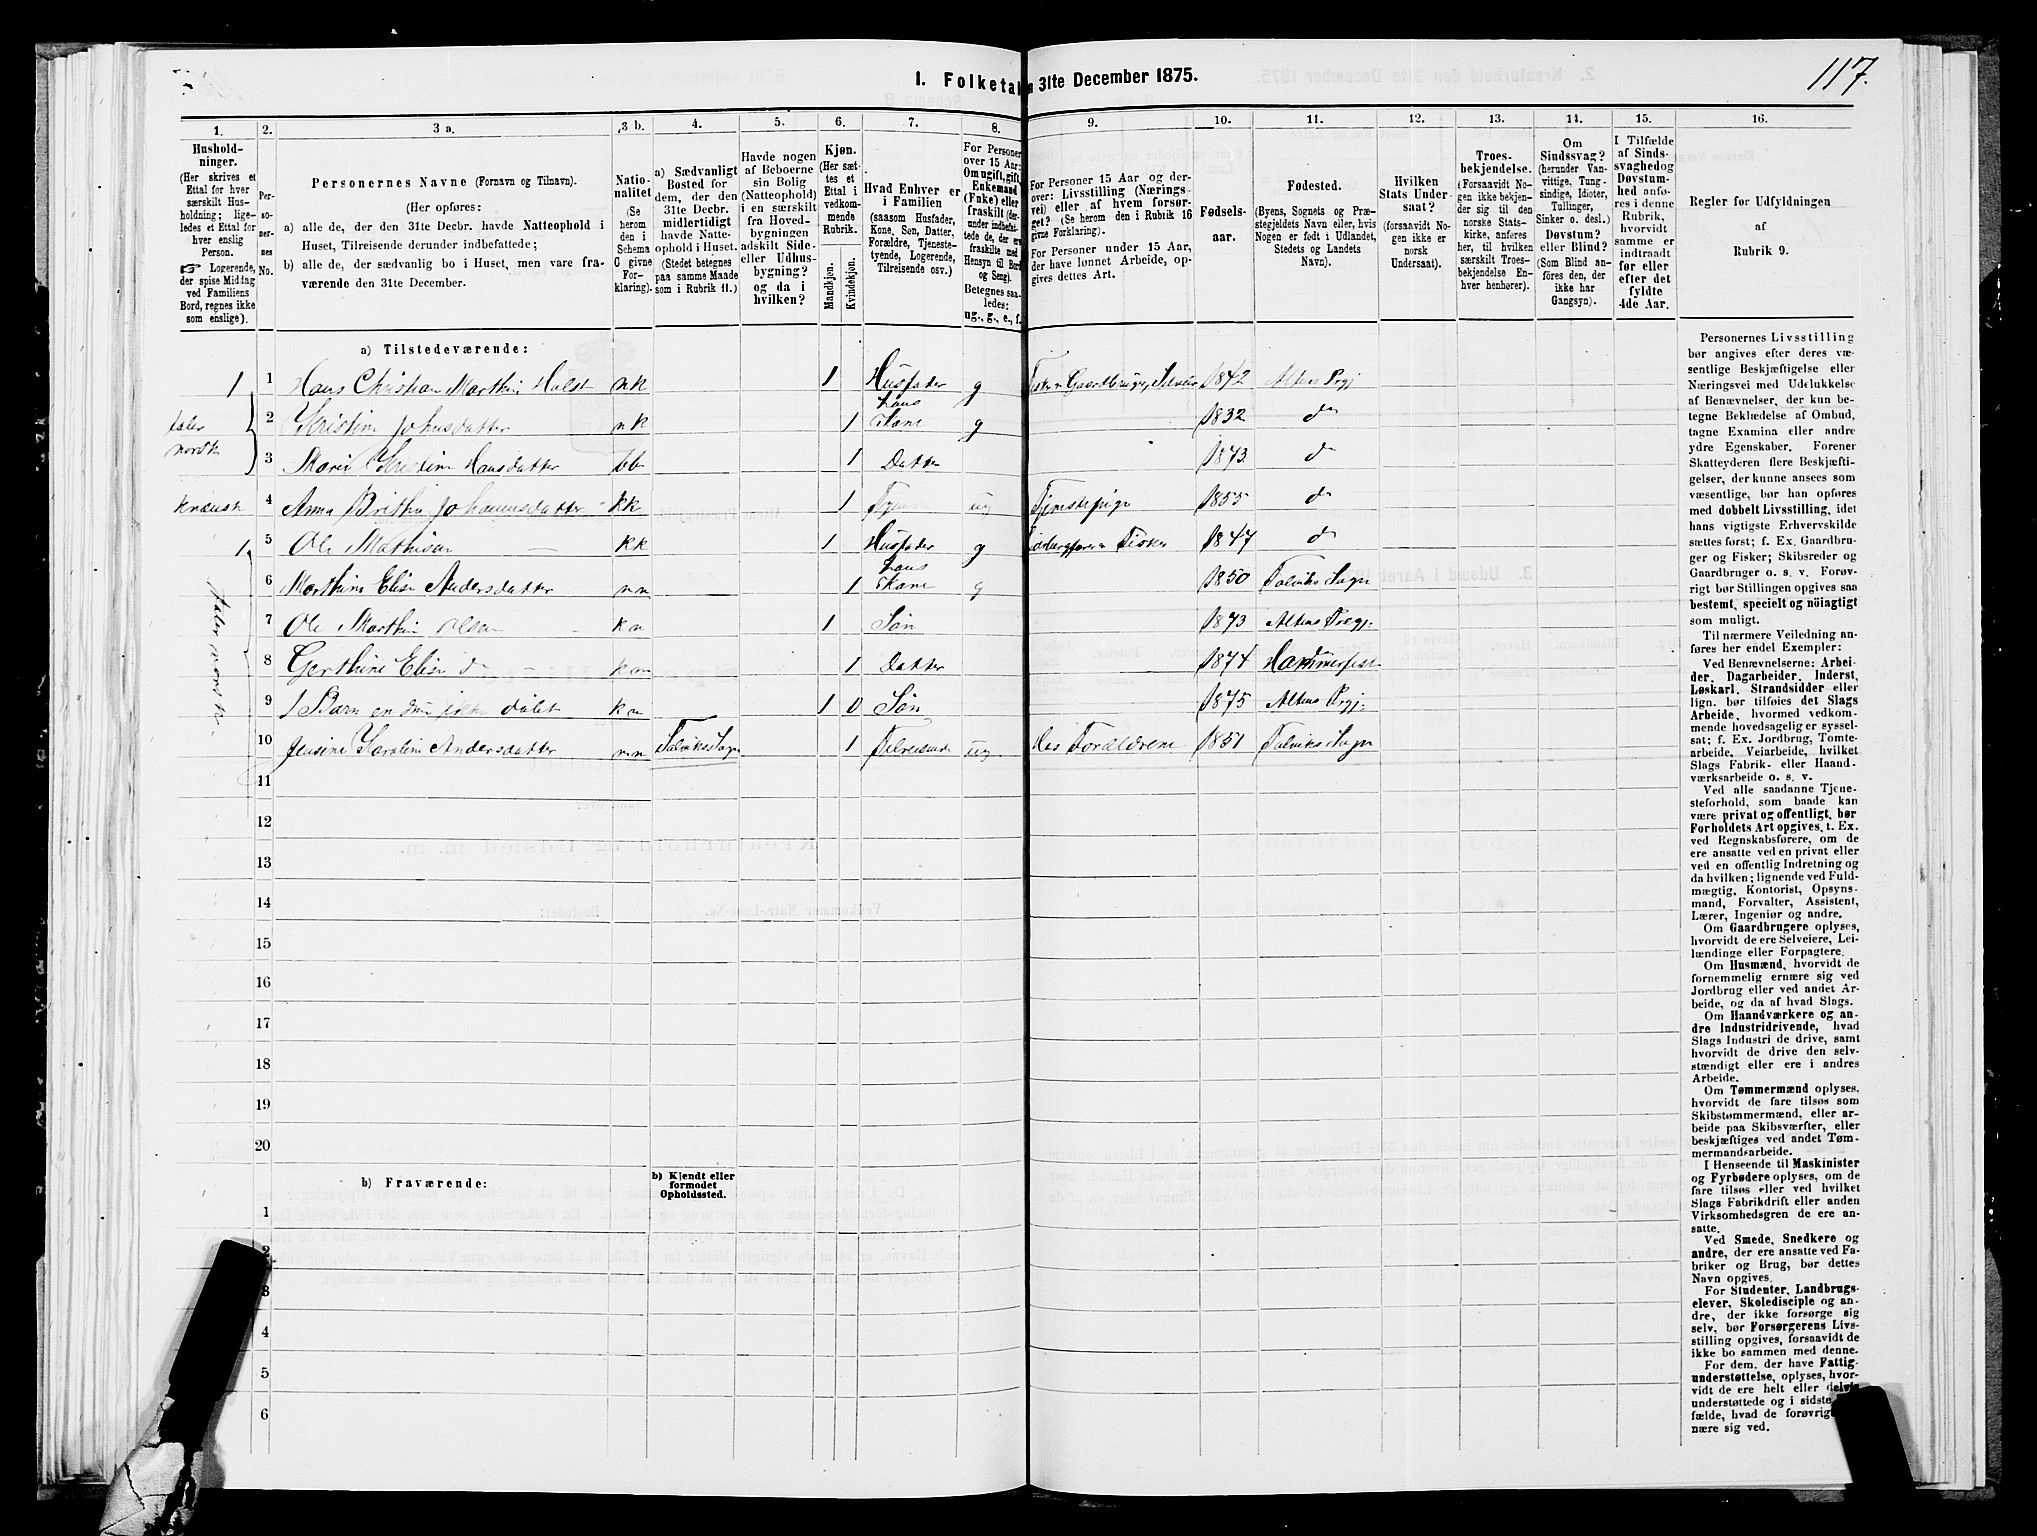 117.
I. Folketal
31te December 1875.
1. 2. 3 a. 3 b. 4. 5. 6. 7. 8. 9. 10. 11. 12. 13. 14. 15. 16.
Hushold-
ninger.
(Her skrives et
Ettal for hver
særskilt Hus-
holdning; lige-
ledes et Ettal for
hver enslig
Person.
☞ Logerende,
der spise Middag
ved Familiens
Bord, regnes ikke
som enslige).
Per-
so-
ner-
nes
No.
Personernes Navne (Fornavn og Tilnavn).
(Her opføres:
a) alle de, der den 31te Decbr. havde Natteophold i
Huset, Tilreisende derunder indbefattede;
b) alle de, der sædvanlig bo i Huset, men vare fra-
værende den 31te December.
Natio-
nalitet
(Se
herom
den i
Schema
C givne
For-
klaring).
a) Sædvanligt
Bosted for
dem, der den
31te Decbr.
midlertidigt
havde Natte-
ophold i Huset.
(Stedet betegnes
paa samme Maade
som i Rubrik 11.)
Havde nogen
af Beboerne
sin Bolig
(Natteophold)
i en særskilt
fra Hoved-
bygningen
adskilt Side-
eller Udhus-
bygning?
og da i
hvilken?
Kjøn.
(Her sæt-
tes et
Ettal i
vedkom-
mende
Rubrik.
Mandkjøn.
Kvindekjøn.
Hvad Enhver er
i Familien
(saasom Husfader,
Kone, Søn, Datter,
Forældre, Tjeneste-
tyende, Logerende,
Tilreisende osv.)
For Personer
over 15 Aar:
Om ugift, gift,
Enkemand
(Enke) eller
fraskilt (der-
under indbefat-
tede de, der ere
fraskilte med
Hensyn til Bord
og Seng).
Betegnes saa-
ledes:
ug., g., e., f.
For Personer 15 Aar og der-
over: Livsstilling (Nærings-
vei) eller af hvem forsør-
get? (Se herom den i Rubrik 16
givne Forklaring).
For Personer under 15 Aar,
der have lønnet Arbeide, op-
gives dettes Art.
Fødsels-
aar.
Fødested.
(Byens, Sognets og Præ-
stegjeldets Navn eller, hvis
Nogen er født i Udlandet,
Stedets og Landets
Navn).
Hvilken
Stats Under-
saat?
(forsaavidt No-
gen ikke er
norsk
Undersaat).
Troes-
bekjendelse.
(Forsaavidt No-
gen ikke bekjen-
der sig til den
norske Stats-
kirke, anføres
her, til hvilken
særskilt Troes-
bekjendelse En-
hver henhører).
Om
Sindssvag?
(herunder Van-
vittige, Tung-
sindige, Idioter,
Tullinger,
Sinker o. desl.)
Døvstum?
eller Blind?
(Som Blind an-
føres den, der
ikke har
Gangsyn).
I Tilfælde
af Sinds-
svaghed og
Døvstum-
hed anfø-
res i denne
Rubrik,
hvorvidt
samme er
indtraadt
før eller
efter det
fyldte
4de Aar.
Regler for Udfyldningen
af
Rubrik 9.
a) Tilstedeværende:
1 1 Hans Christian Marthin Holst nk 1 Husfader g Gaardbruger, Selveier 1842 Altens Prgj
taler norsk 2 Kristine Johnsdatter nk 1 hans Kone g 1832 do
3 Marie Kristine Hansdatter bb 1 Datter 1873 do
4 Anna Britha Johannesdatter kk 1 ug Tjenestepige 1855 do
1 5 Ole Mathisen kk 1 Husfader g Fisker 1847 do
taler norsk 6 Marthine Elise Andersdatter nn 1 hans Kone g 1850 Talviks Sogn
7 Ole Marthin Olsen kn 1 Søn 1873 Altens Prgj.
8 Gerthine Elise do kn 1 Datter 1874 Hammerfest
9 1 Barn en du ikke døbt kn 1 0 Søn 1875 Altens Prgj.
10 Jensine Karoline Andersdatter nn Talviks Sogn 1 Tilreisende ug Hos Forældrene 1851 Talviks Sogn
11
12
13
14
15
16
17
18
19
20
b) Fraværende:
b) Kjendt eller
formodet
Opholdssted.
1
2
3
4
5
6
Personernes Livsstilling
bør angives efter deres væ-
sentlige Beskjæftigelse eller
Næringsvei med Udelukkelse
af Benævnelser, der kun be-
tegne Beklædelse af Ombud,
tagne Examina eller andre
ydre Egenskaber. Forener
Skatteyderen flere Beskjæfti-
gelser, der kunne ansees som
væsentlige, bør han opføres
med dobbelt Livsstilling, idet
hans vigtigste Erhvervskilde
sættes først; f. Ex. Gaardbru-
ger og Fisker; Skibsreder og
Gaardbruger o. s. v. Forøv-
rigt bør Stillingen opgives saa
bestemt, specielt og nöiagtigt
som muligt.
Til nærmere Veiledning an-
føres her endel Exempler:
Ved Benævnelserne: Arbei-
der, Dagarbeider, Inderst,
Løskarl, Strandsidder eller
lign. bør tilføies det Slags
Arbeide, hvormed vedkom-
mende hovedsagelig er syssel-
sat; f. Ex. Jordbrug, Tomte-
arbeide, Veiarbeide, hvilket
Slags Fabrik- eller Haand-
værksarbeide o. s. v.
Ved alle saadanne Tjene-
steforhold, som baade kan
være privat og offentligt, bør
Forholdets Art opgives, t. Ex.
ved Regnskabsførere, om de
ere ansatte ved en privat eller
ved en offentlig Indretning og
da hvilken; lignende ved Fuld-
mægtig, Kontorist, Opsyns-
mand, Forvalter, Assistent,
Lærer, Ingeniør og andre.
Om Gaardbrugere oplyses,
hvorvidt de ere Selveiere, Lei-
lændinge eller Forpagtere.
Om Husmænd, hvorvidt de
fornemmelig ernære sig ved
Jordbrug eller ved andet Ar-
beide, og da af hvad Slags.
Om Haandværkere og an-
dre Industridrivende, hvad
Slags Industri de drive, samt
hvorvidt de drive den selv-
stændigt eller ere i andres
Arbeide.
Om Tømmermænd oplyses,
hvorvidt de fare tilsøs som
Skibstømmermænd, eller ar-
beide paa Skibsværfter, eller
beskjæftiges ved andet Tøm-
mermandsarbeide.
I Henseende til Maskinister
og Fyrbødere oplyses, om de
fare tilsøs eller ved hvilket
Slags Fabrikdrift eller anden
Virksomhedsgren de ere an-
satte.
Ved Smede, Snedkere og
andre, der ere ansatte ved Fa-
briker og Brug, bør dettes
Navn opgives.
For Studenter, Landbrugs-
elever, Skoledisciple og an-
dre, der ikke forsørge sig
selv, bør Forsørgerens Livs-
stilling opgives, forsaavidt de
ikke bo sammen med denne.
For dem, der have Fattig-
understøttelse, oplyses, hvor-
vidt de ere helt eller delvis
understøttede og i sidste
fælde, hvad de forøvrigt
nære sig ved.